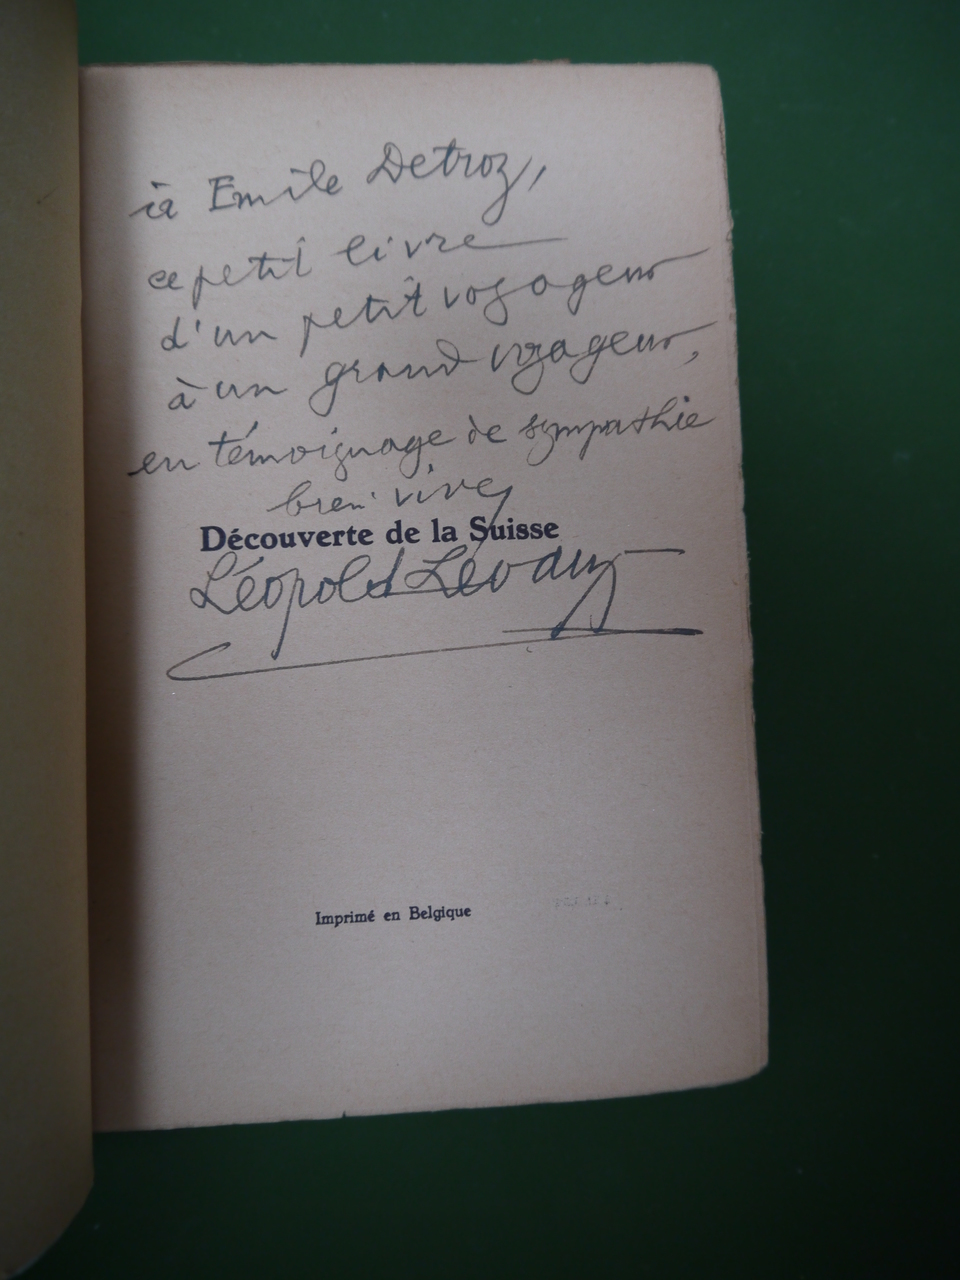 à Emile Detroz,
ce petit livre
d'un petit voyageur
à un grand voyageur,
en témoignage de sympathie
bien vive,
Découverte de la Suisse
Léopold Levaux
Imprimé en Belgique